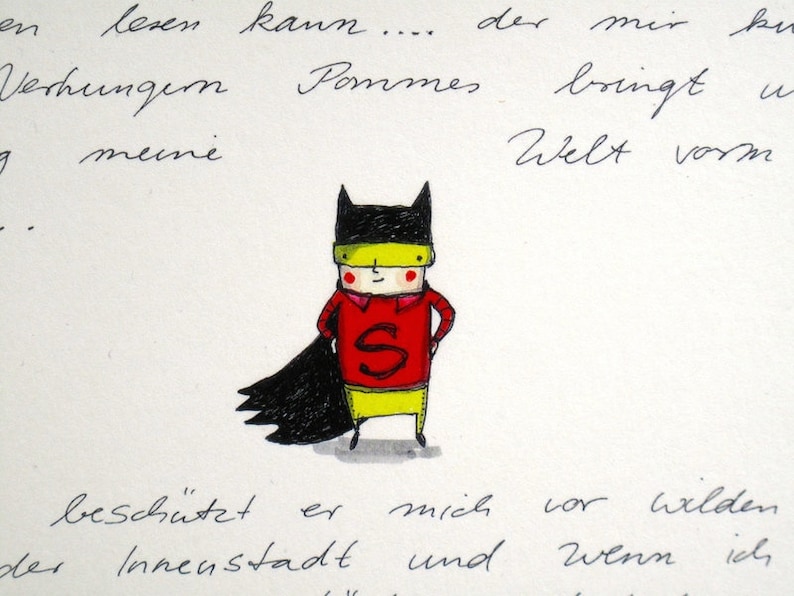 lesen kann.... der mir
Verhungern Pommes bringt
meine Welt vorm
..
S
beschützt er mich vor wilden
der Innenstadt und wenn ich